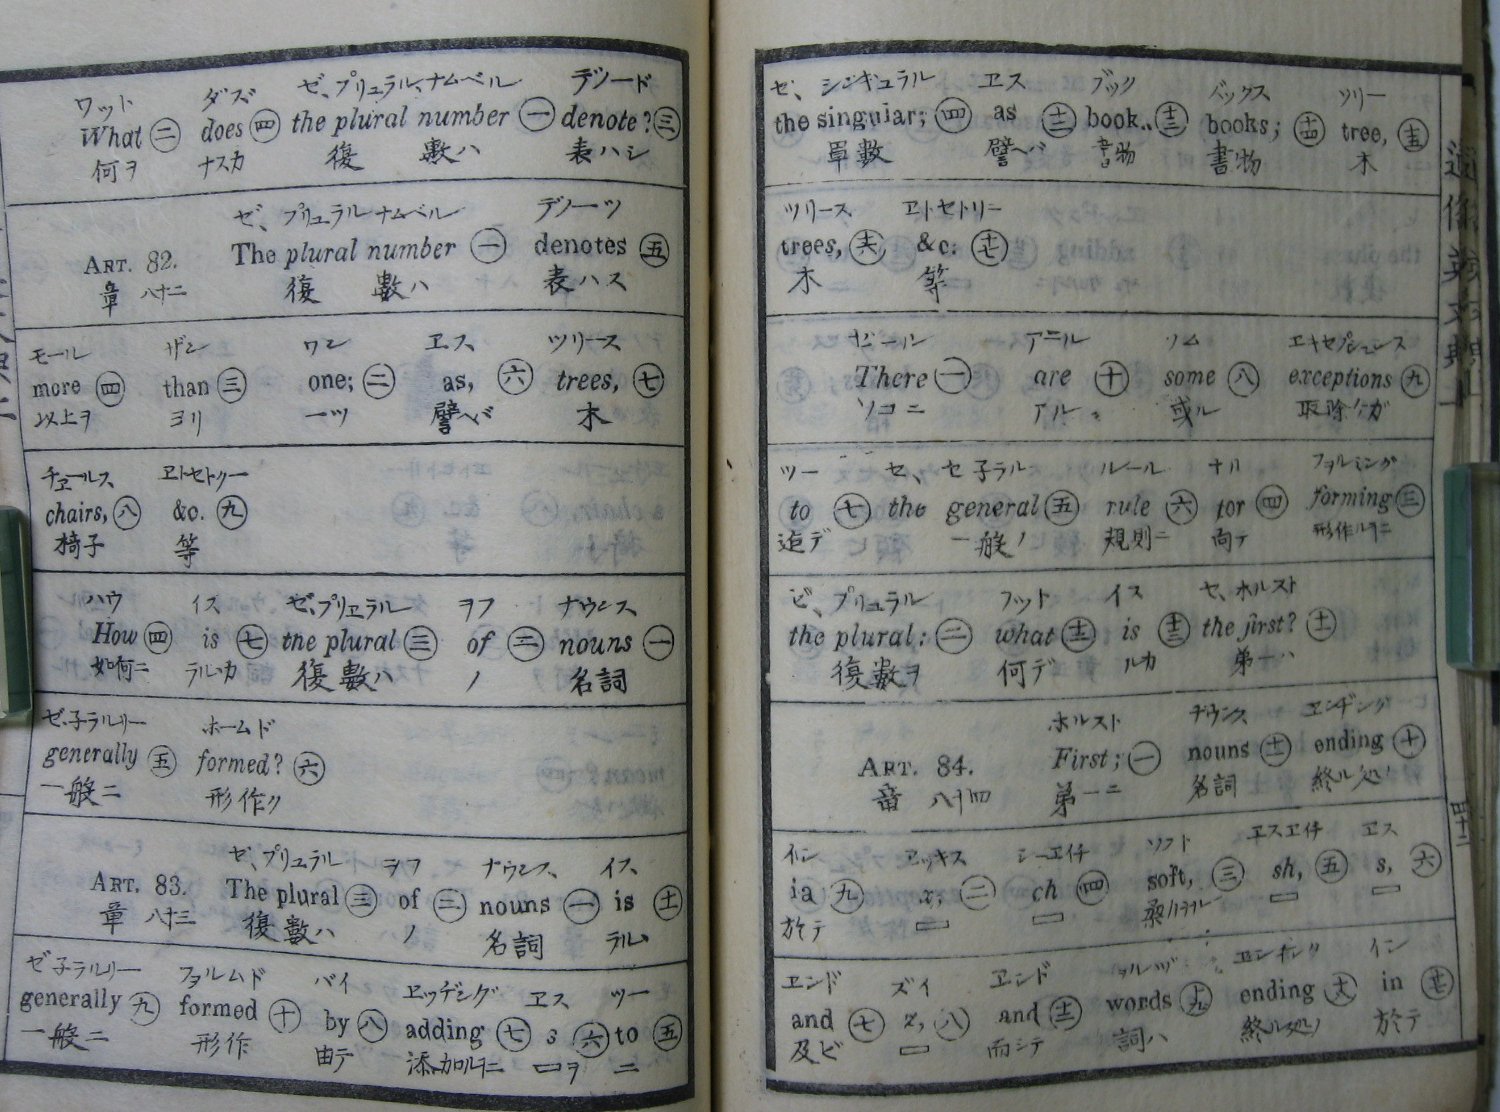 ワット ダズ ゼ、プリュラル、ナムベル デノード
What 二 does 四 the plural number 一 denote? 三
何ヲ ナスカ 復 數ハ 表ハシ
ゼ、プリュラル ナムベル デノーツ
ART. 82. The plural number 一 denotes 五
章 八十二 復 數ハ 表ハス
モール ザン ワン ヱス ツリース
more 四 than 三 one; 二 as, 六 trees, 七
以上ヲ ヨリ 一ツ 譬ヘバ 木
チェールス ヱトセトリー
chairs, 八 &c. 九
椅子 等
ハウ イス ゼ、プリュラル ヲフ ナウンス
How 四 is 七 the plural 三 of 二 nouns 一
如何ニ ラルヽカ 復數ハ ノ 名詞
ゼ子ラルリー ホームド
generally 五 formed? 六
一般ニ 形作ク
ゼ、プリュラル ヲフ ナウンス、 イス、
ART. 83. The plural 三 of 二 nouns 一 is 十一
章 八十三 復數ハ ノ 名詞 ラルヽ
ゼ子ラルリー フヲルムド バイ ヱッヂング ヱス ツー
generally 九 formed 十 by 八 adding 七 s 六 to 五
一般ニ 形作 由テ 添加ルヿニ ヲ ニ
ゼ、シンギュラル ヱス ブック ブックス ツリー
the singular; 四 as 十二 book.. 十三 books; 十四 tree, 十五
單數 譬ヘバ 書物 書物 木
ツリース ヱトセトリー
trees, 十六 &c: 十七
木 等
ゼール アール ソム ヱキセプションス
There 一 are 十 some 八 exceptions 九
ソコニ アル 或ル 取除ケガ
ツー ゼ、 ゼ子ラル ルール ホル フヲルミング
to 七 the general 五 rule 六 for 四 forming 三
迄デ 一般ノ 規則ニ 向テ 形作ルヿニ
ゼ、プリュラル フット イス ゼ、ホルスト
the plural: 二 what 十二 is 十三 the first? 十一
復數ヲ 何デ ルカ 第一ハ
ホルスト ナウンス ヱンヂング
ART. 84. First; 一 nouns 十一 ending 十
章 八十四 第一ニ 名詞 終ル処ノ
イン ヱッキス シーヱイチ ソフト ヱスヱイチ ヱス
in 九 x, 二 ch 四 soft, 三 sh, 五 s, 六
於テ
ヱンド ズイ ヱンド ヲルヅ ヱンヂング イン
and 七 z, 八 and 十二 words 十九 ending 十八 in 十七
及ビ 而シテ 詞ハ 終ル処ノ 於テ